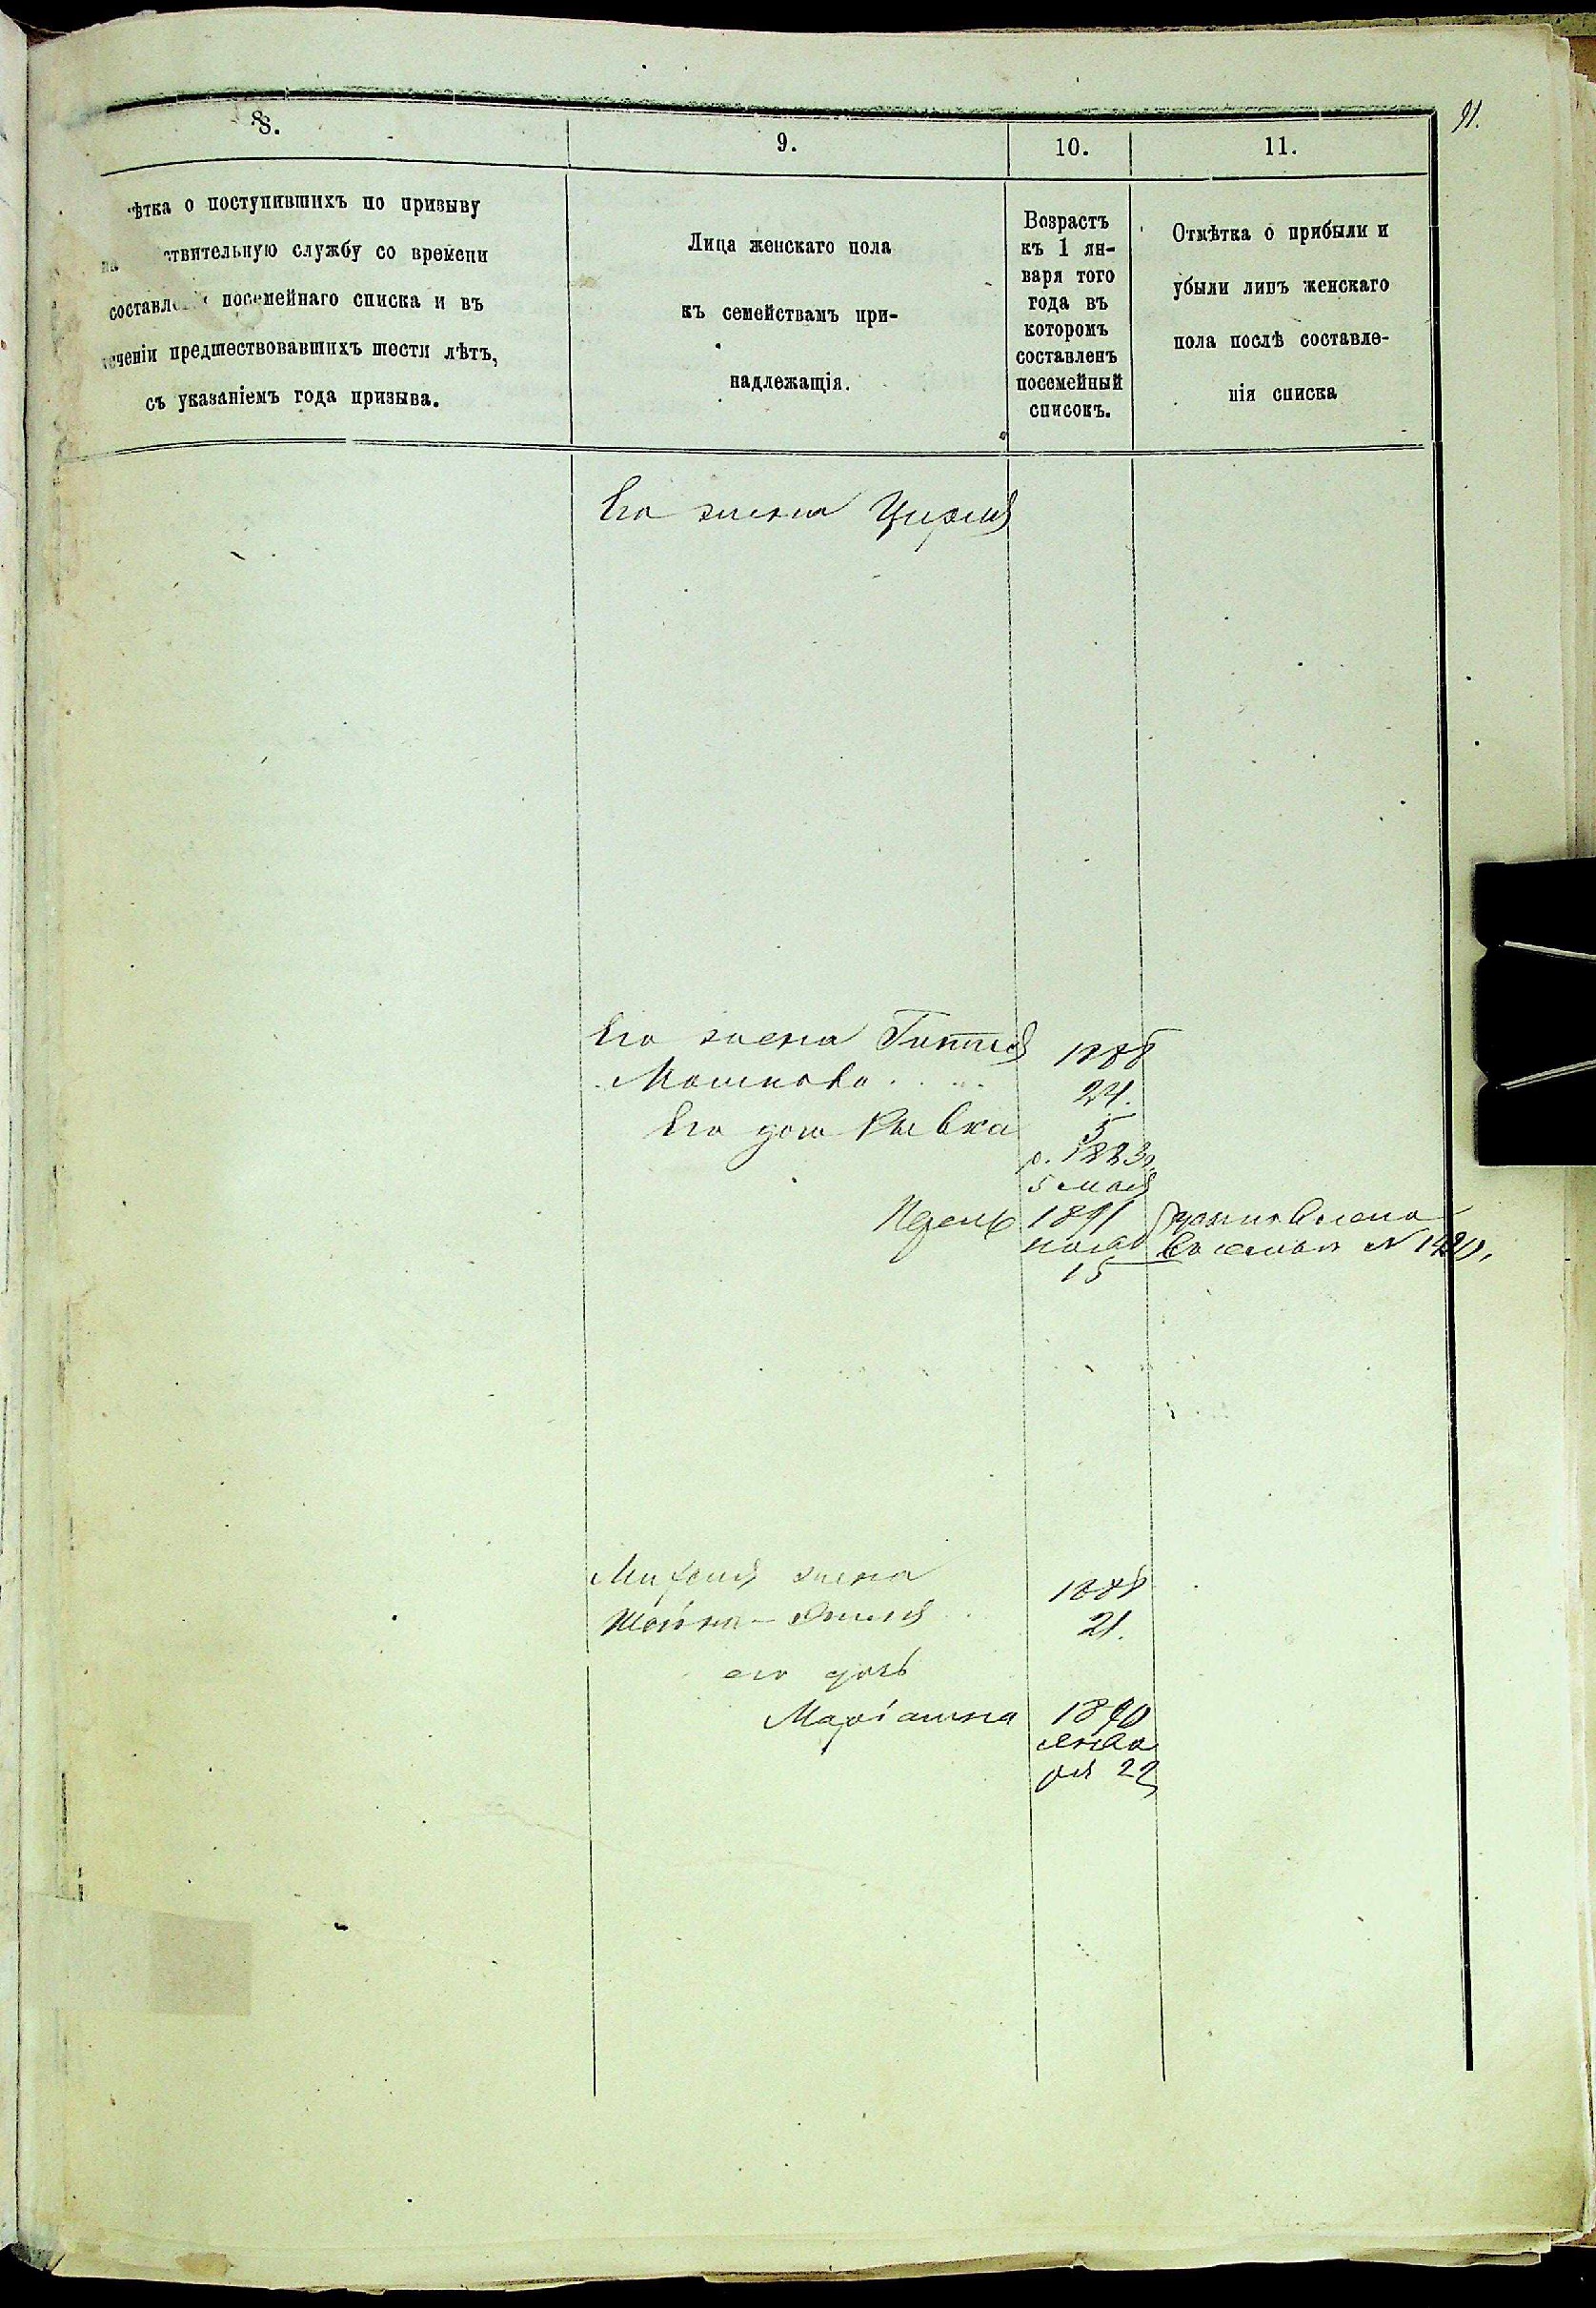 91.
8.
9.
10.
11.
ѣтка о поступившихъ по призыву
на ствительную службу со времени
составле посемейнаго списка и въ
ченіи предшествовавшихъ шести лѣтъ,
съ указаніемъ года призыва.
Лица женскаго пола
къ семействамъ при-
надлежащія.
Возрастъ
къ 1 ян-
варя того
года въ
которомъ
составленъ
посемейный
списокъ.
Отмѣтка о прибыли и
убыли лицъ женскаго
пола послѣ составле-
нія списка
Его жена Цирля
Его жена Гиттля 1888
Мошкова 24.
Его дочь Ривка 5
р. 1883 г.
5 мая
1891
15
въ семью N 1420.
жена 1888
21.
его дочь
Маріашка 1890
Янва
ря 22